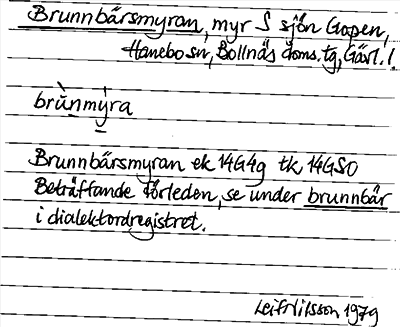 Brunnbärsmyran, myr S sjön Gopen,
Hanebo sn, Bollnäs doms.tg, Gävl.l.
brùnmýra
Brunnbärsmyran ek 14G4g tk 14GSO
Beträffande förleden, se under brunnbär
i dialektordregistret.
Leif Nilsson 1979